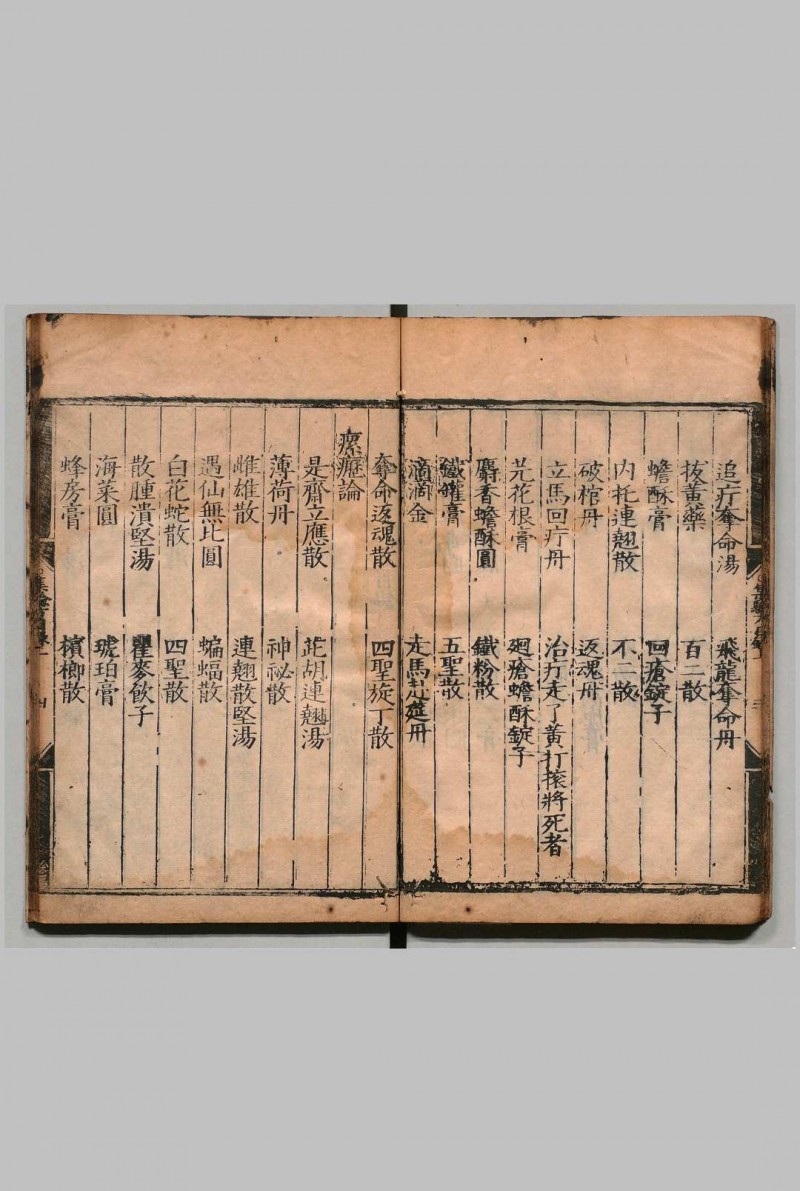 追疔奪命湯 飛龍奪命丹
拔黃藥 百二散
蟾酥膏 回瘡錠子
內托連翹散 不二散
破棺丹 返魂丹
立馬回疔丹 治疔走了黃打滚將死者
芫花根膏 廻瘡蟾酥錠子
麝香蟾酥圓 鐵粉散
鐵罐膏 五聖散
滴滴金 走馬赴筵丹
奪命返魂散 四聖旋丁散
瘰癧論
是齋立應散 茈胡連翹湯
薄荷丹 神祕散
雌雄散 連翹散堅湯
遇仙無比圓 蝙蝠散
白花蛇散 四聖散
散腫潰堅湯 瞿麥飲子
海菜圓 琥珀膏
蜂房膏 檳榔散